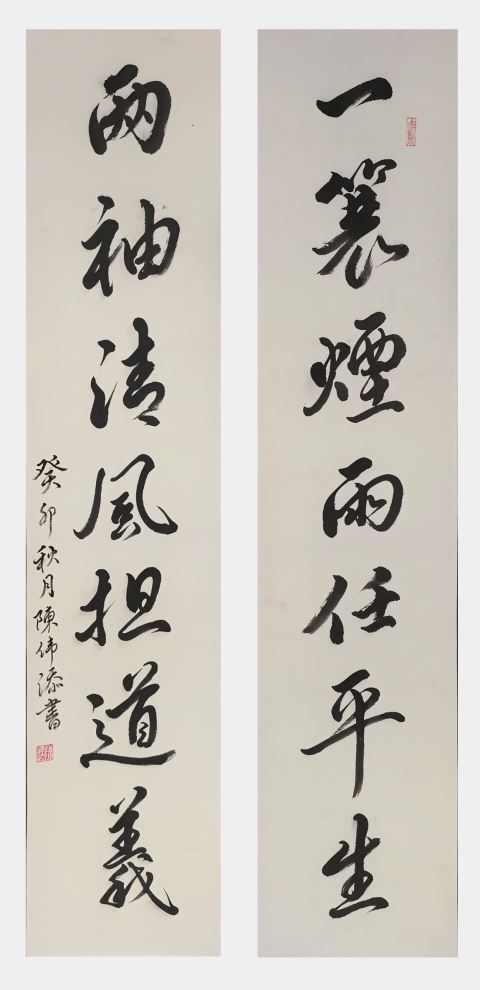 一蓑煙雨任平生
两袖清風担道義
癸卯秋月陳偉添書